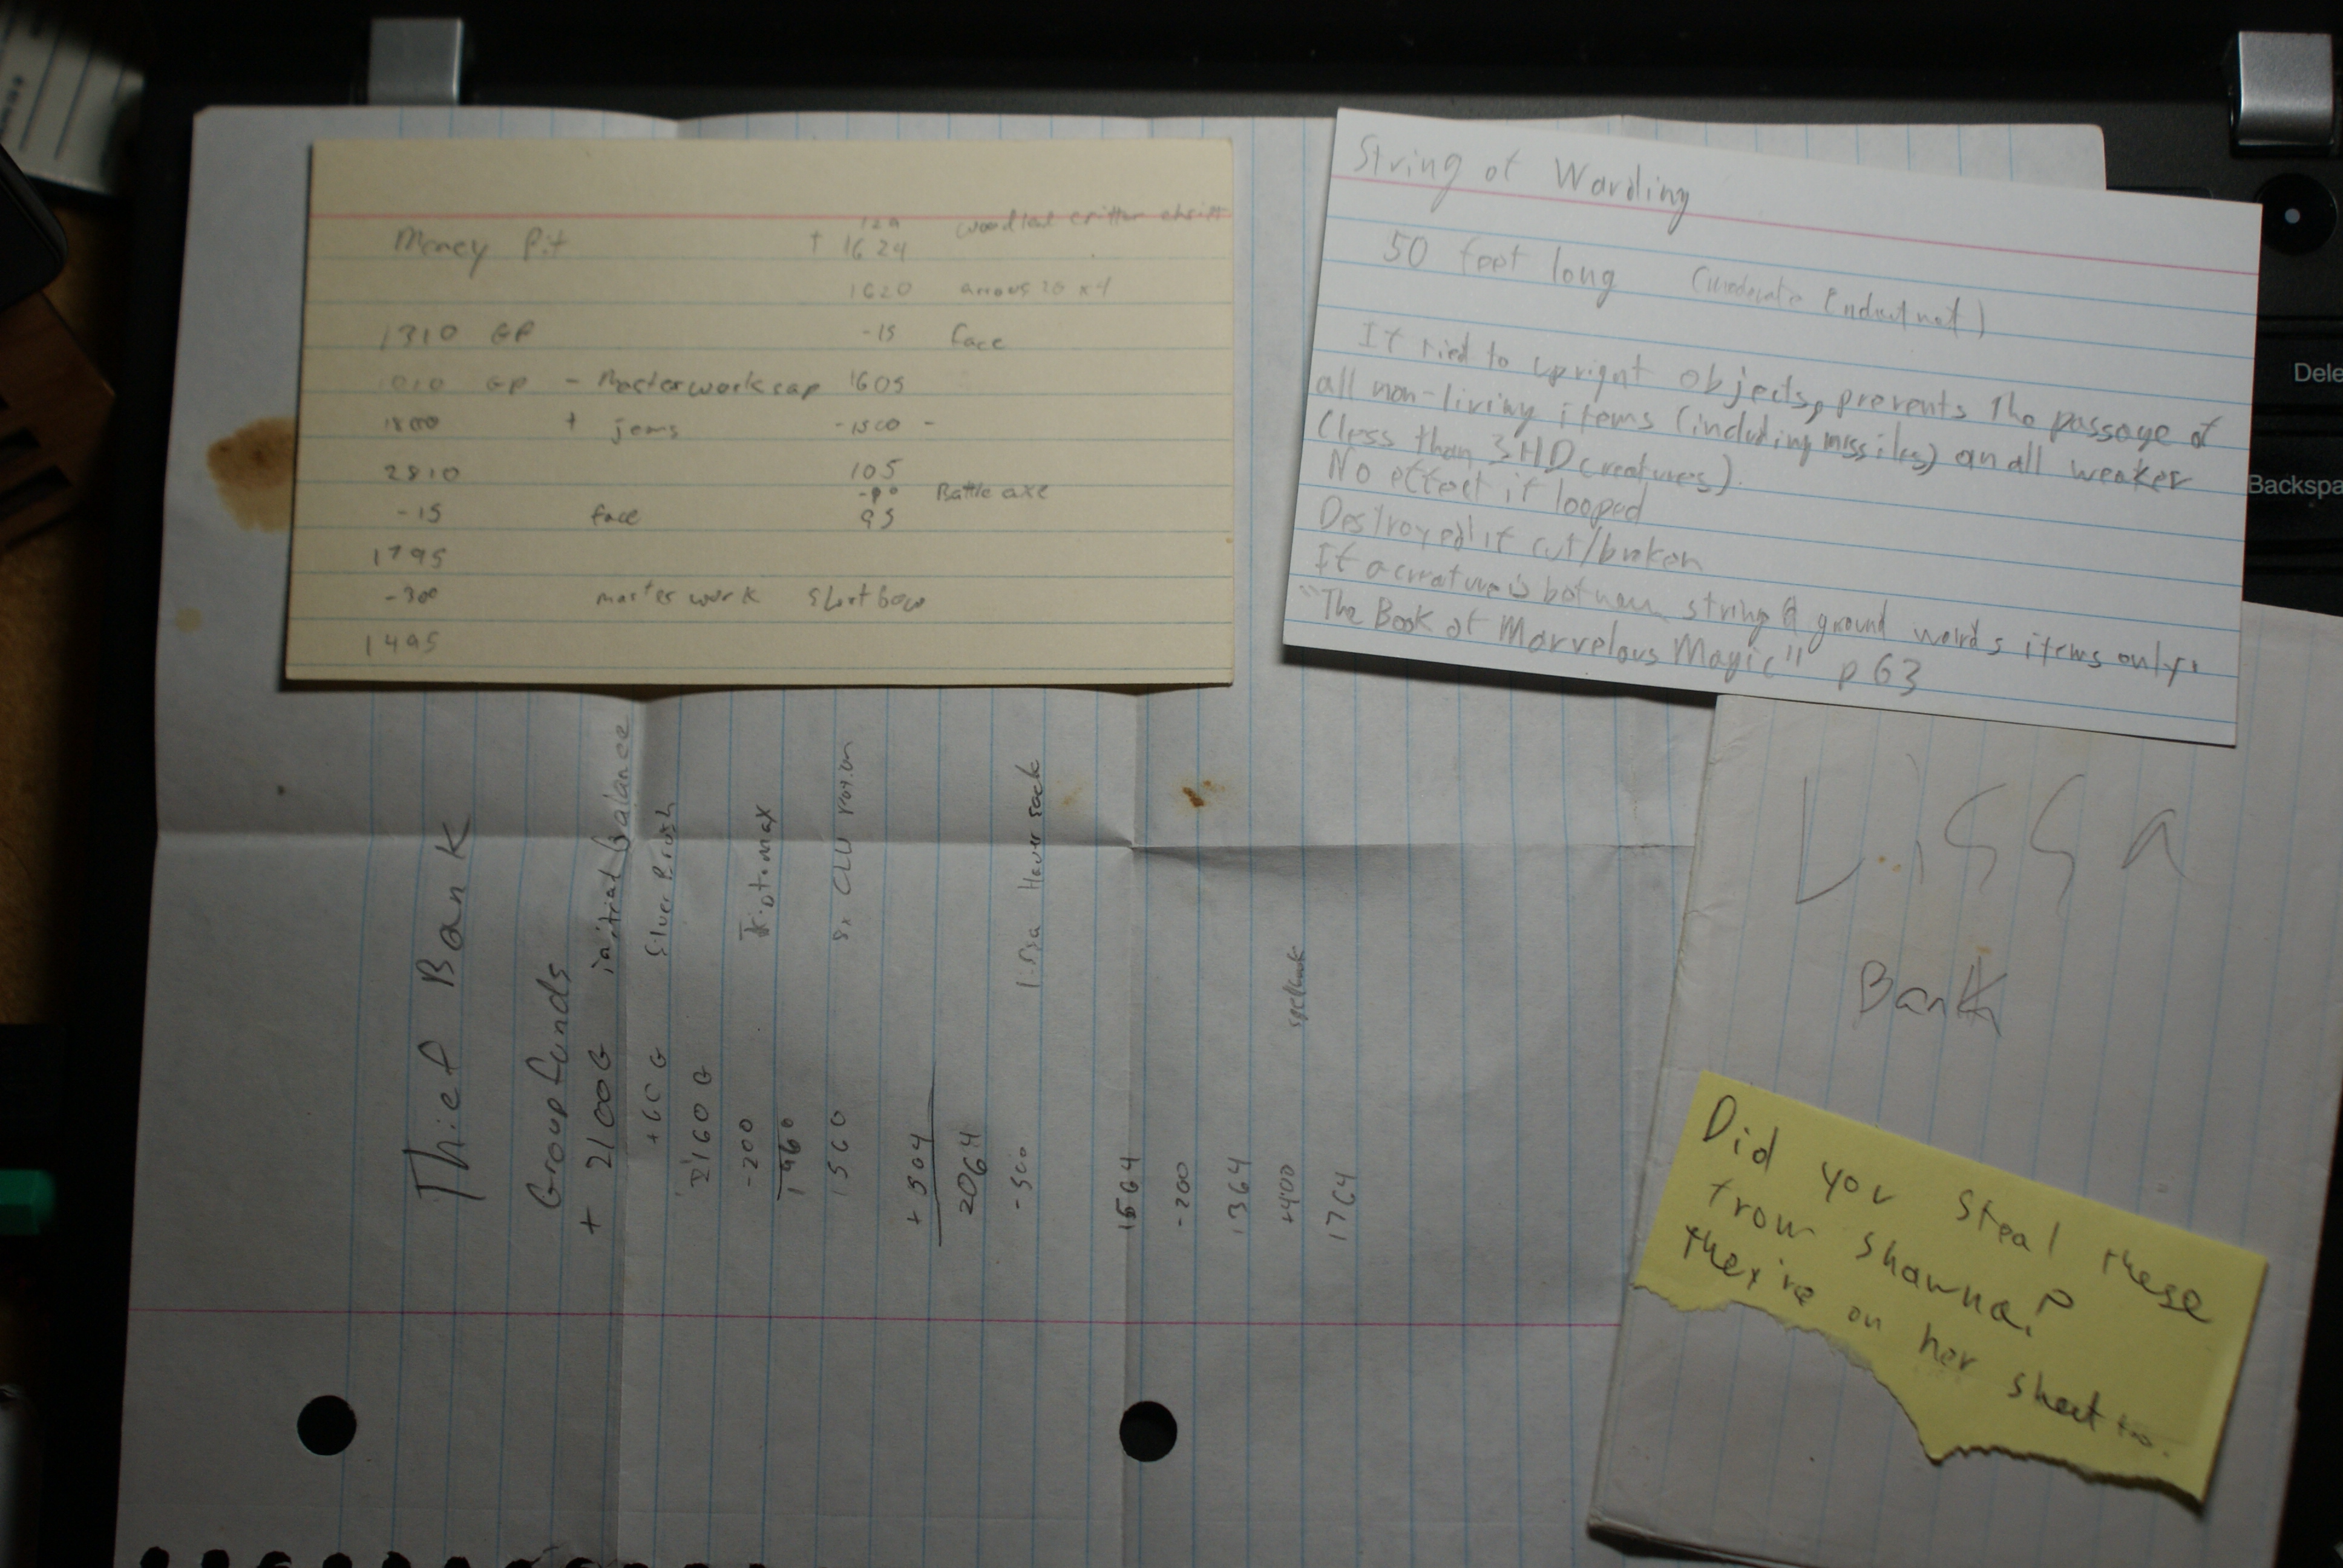 Money Pit
1310 GP
1010 GP - Masterwork cap
1800 + jems
2810
-15 face
1795
-300 master work Shortbow
1495
129 woodland critter
+ 1624
1620 arrows 20 x4
-15 face
1605
-1500 -
105
Battle axe
95
String of Warding
50 feet long (moderate
If tied to upright objects, prevents the passage of
all non-living items (including missiles) an all weaker
(less than 3HD creatures).
No effect if looped
Destroyed if cut/broken
If a creature is between string & ground wards items only.
"The Book of Marvelous Magic" p 63
Thief Bank
Group funds
+ 2100G initial Balance
+60 G Silver Brush
2160 G
-200
1960
1560 8x CLW Potion
+504
2064
-500 Lissa Haversack
1564
-200
1364
+400 spellbook
1764
Lissa
Bank
Did you steal these
from Shawna?
They're on her sheet too.
Dele
Backspa